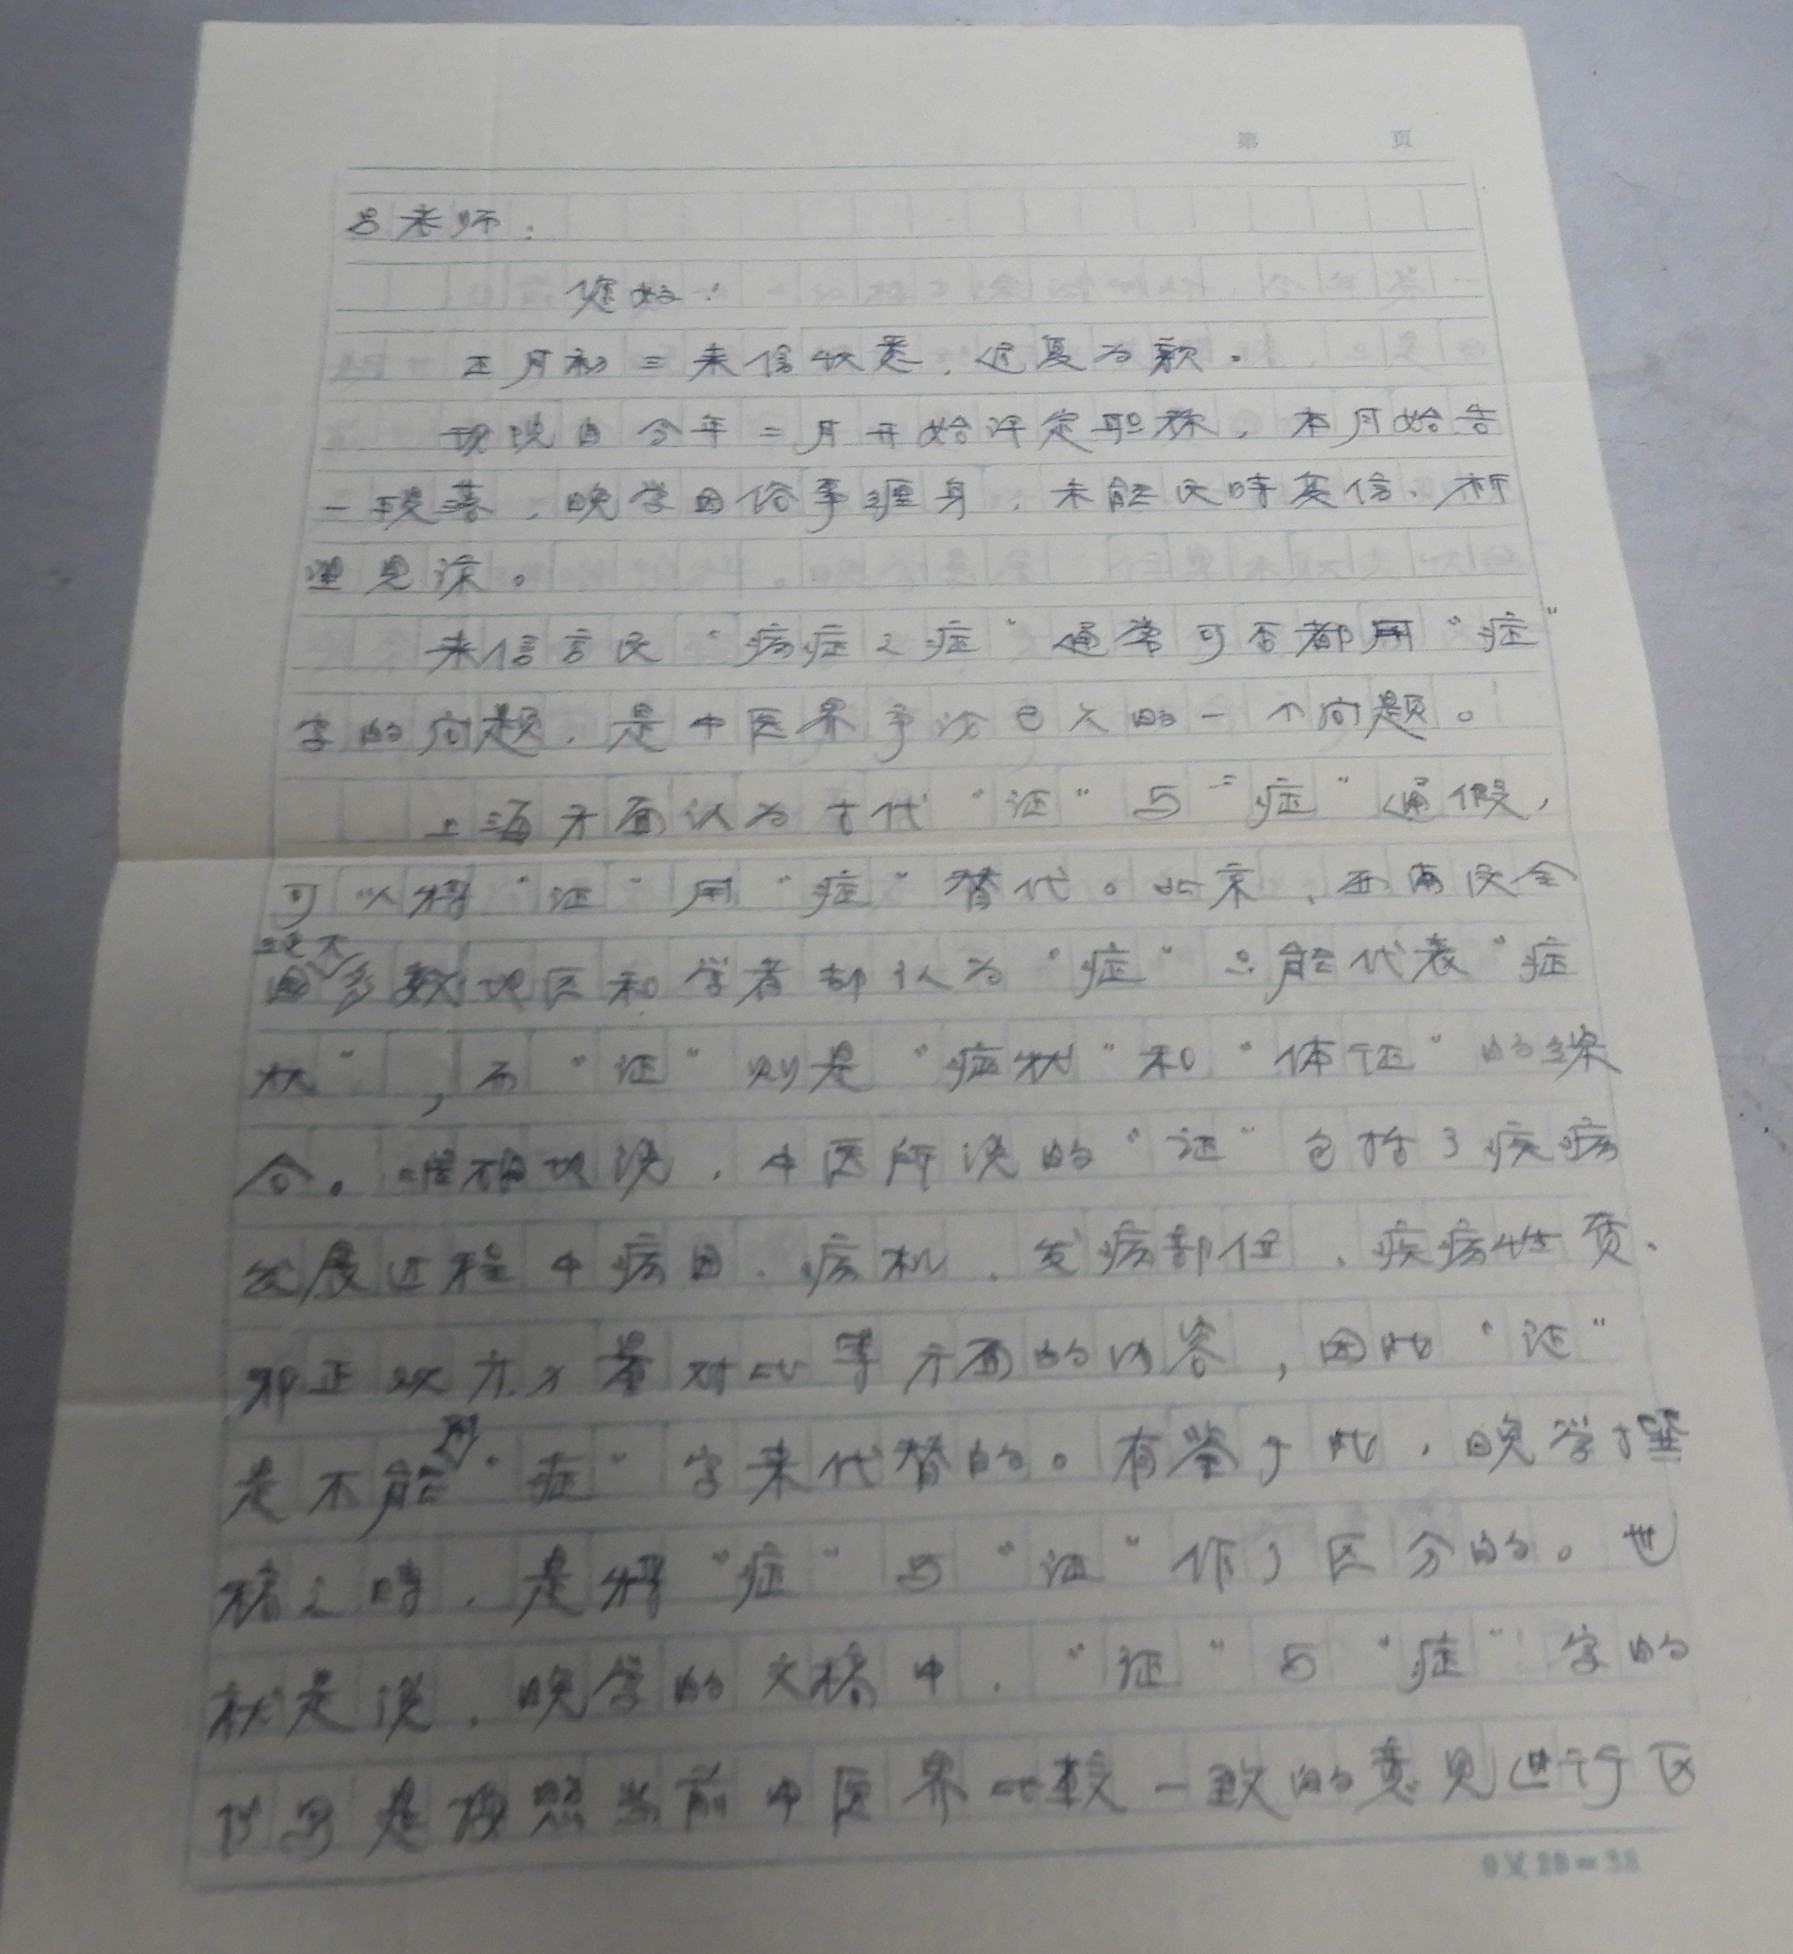 第 页
吕老师：
您好！
正月初三来信收悉，迟复为歉。
我院自今年二月开始评定职称，本月始告
一段落，晚学因俗事缠身，未能及時复信，祈
望見谅。
来信言及“病症之症”通常可否都用“症”
字的问题，是中医界争论已久的一个问题。
上海方面认为古代“证”与“症”通假，
可以将“证”用“症”替代。北京、西南及全
国绝大多数地区和学者都认为“症”只能代表“症
状”，而“证”则是“症状”和“体征”的综
合。准确地说，中医所说的“证”包括了疾病
发展过程中病因、病机、发病部位、疾病性质、
邪正双方力量对比等方面的内容，因此“证”
是不能用“症”字来代替的。有鉴于此，晚学撰
稿之時，是将“症”与“证”作了区分的。也
就是说，晚学的文稿中，“证”与“症”字的
书写是按照当前中医界比较一致的意见进行区